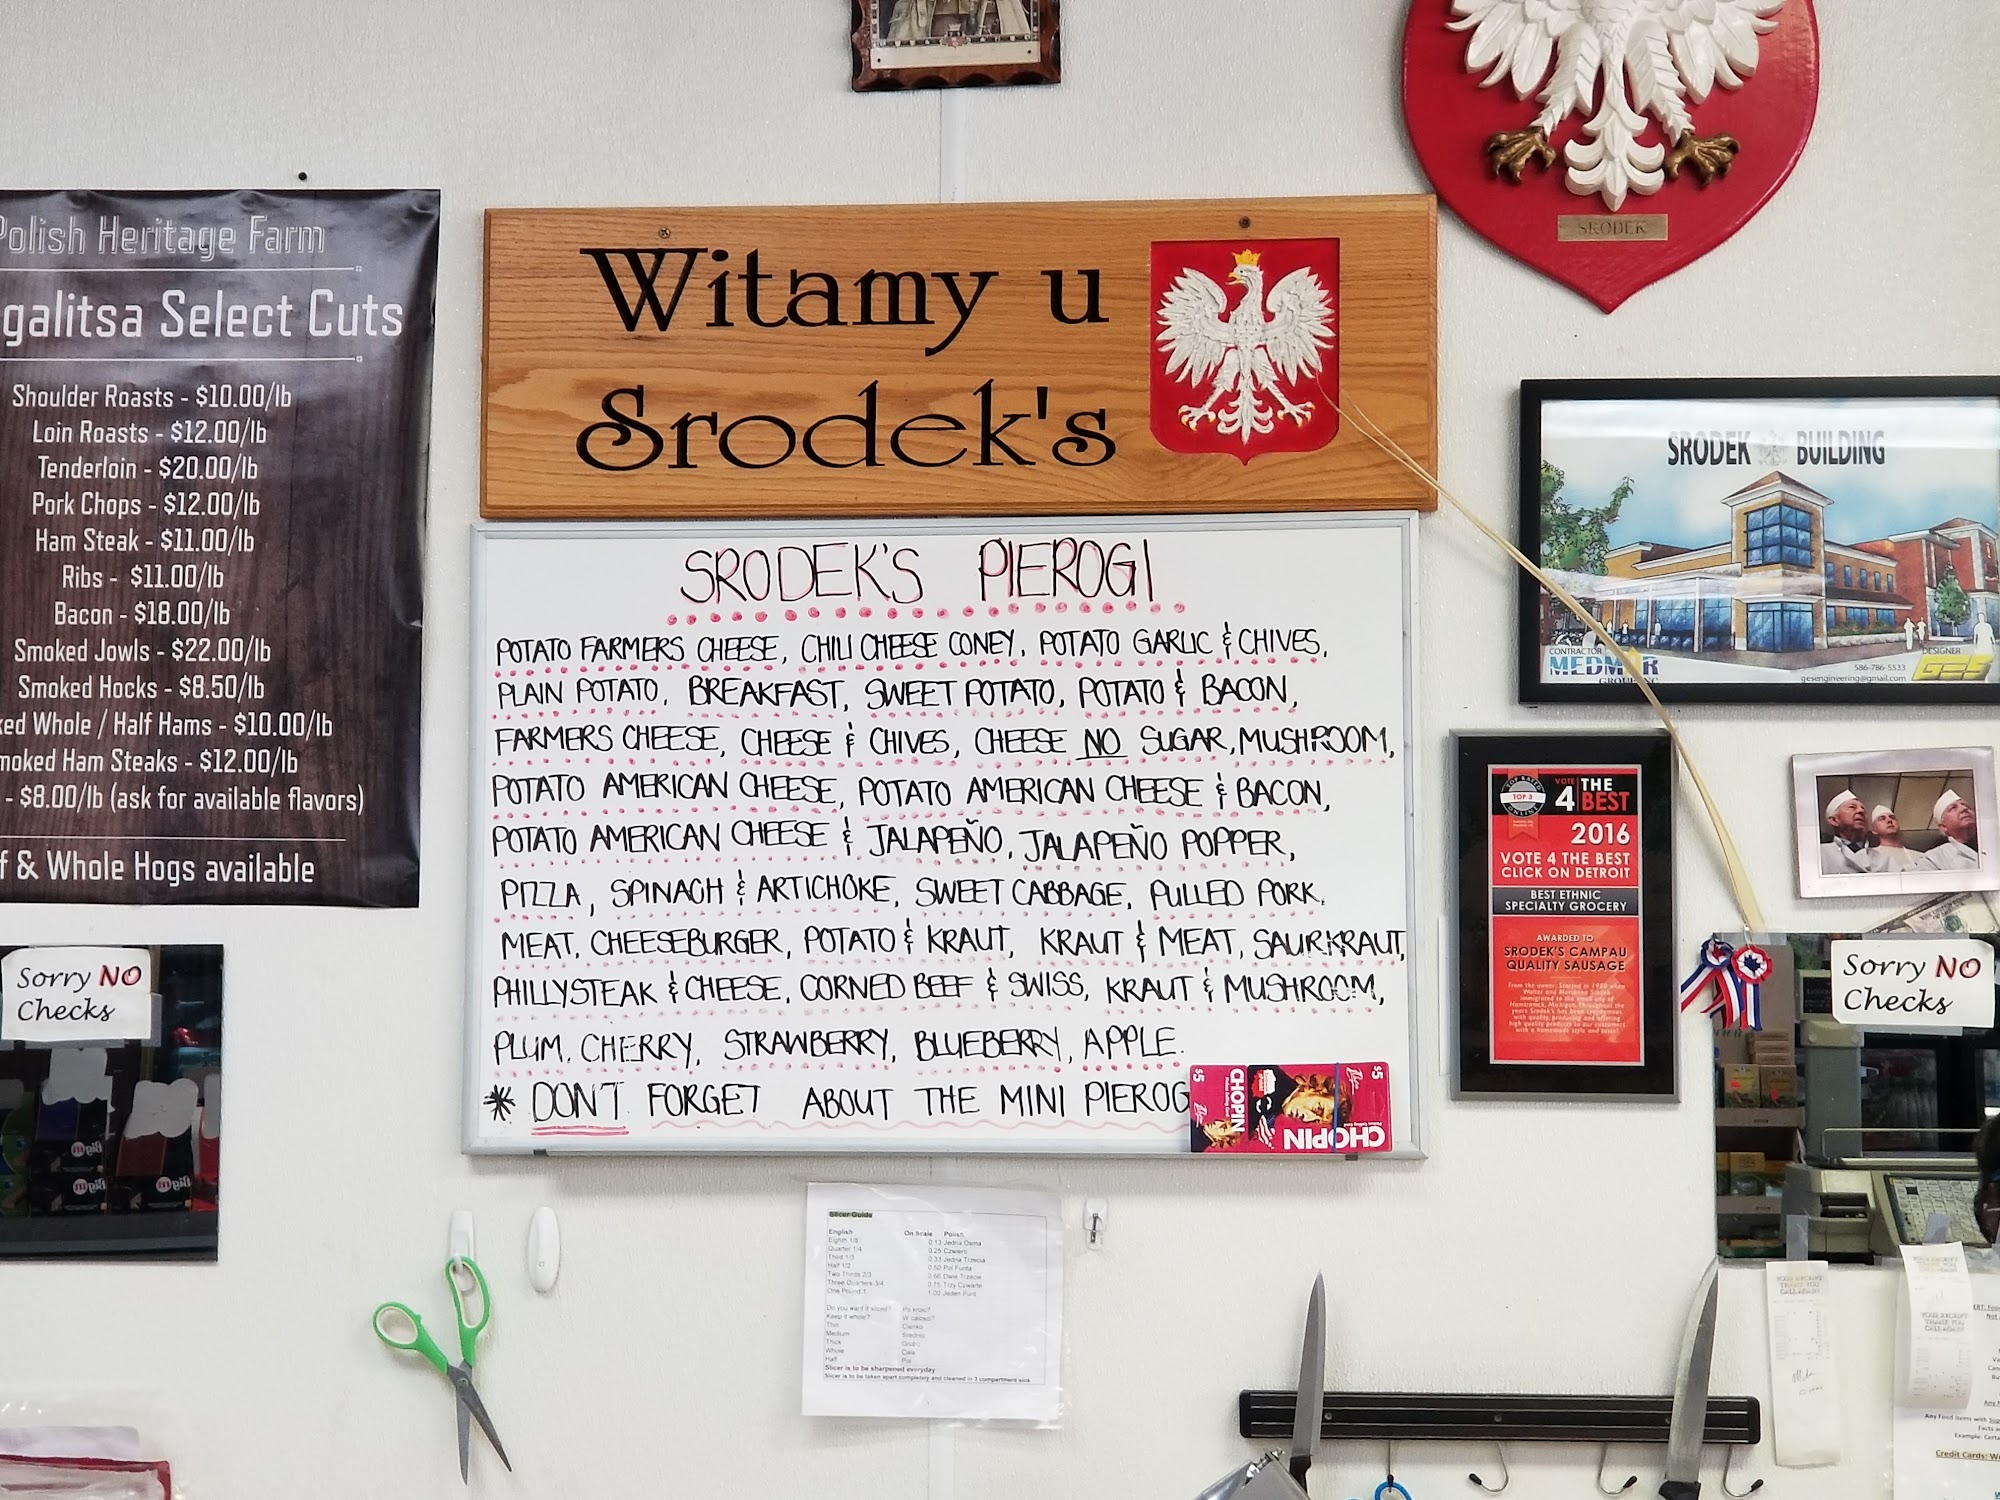 Polish Heritage Farm
galitsa Select Cuts
Shoulder Roasts - $10.00/lb
Loin Roasts - $12.00/lb
Tenderloin - $20.00/lb
Pork Chops - $12.00/lb
Ham Steak - $11.00/lb
Ribs - $11.00/lb
Bacon - $18.00/lb
Smoked Jowls - $22.00/lb
Smoked Hocks - $8.50/lb
ked Whole / Half Hams - $10.00/lb
moked Ham Steaks - $12.00/lb
- $8.00/lb (ask for available flavors)
f & Whole Hogs available
Sorry NO
Checks
Witamy u
Srodek's
SRODEK'S PIEROGI
POTATO FARMERS CHEESE, CHILI CHEESE CONEY, POTATO GARLIC & CHIVES,
PLAIN POTATO, BREAKFAST, SWEET POTATO, POTATO & BACON,
FARMERS CHEESE, CHEESE & CHIVES, CHEESE NO SUGAR, MUSHROOM,
POTATO AMERICAN CHEESE, POTATO AMERICAN CHEESE & BACON,
POTATO AMERICAN CHEESE & JALAPEÑO, JALAPEÑO POPPER,
PIZZA, SPINACH & ARTICHOKE, SWEET CABBAGE, PULLED PORK,
MEAT, CHEESEBURGER, POTATO & KRAUT, KRAUT & MEAT, SAURKRAUT,
PHILLYSTEAK & CHEESE, CORNED BEEF & SWISS, KRAUT & MUSHROOM,
PLUM, CHERRY, STRAWBERRY, BLUEBERRY, APPLE.
* DON'T FORGET ABOUT THE MINI PIEROG
$5 CHOPIN $5
CHOPIN
Slicer Guide
English On Scale Polish
Eighth 1/8 0.13 Jedna Osma
Quarter 1/4 0.25 Czwierc
Third 1/3 0.33 Jedna Trzecia
Half 1/2 0.50 Pol Funta
Two Thirds 2/3 0.66 Dwie Trzecie
Three Quarters 3/4 0.75 Trzy Czwarte
One Pound 1 1.00 Jeden Funt
Do you want it sliced? Po kroic?
Keep it whole? W calosci?
Thin Cienko
Medium Srednio
Thick Grubo
Whole Cala
Half Pol
Slicer is to be sharpened everyday
Slicer is to be taken apart completely and cleaned in 3 compartment sink
SRODEK
SRODEK BUILDING
CONTRACTOR
MEDMAR
GROUP INC
DESIGNER
GES
586-786-5533
gesengineering@gmail.com
TOP 3
VOTE 4 THE BEST
2016
VOTE 4 THE BEST
CLICK ON DETROIT
BEST ETHNIC
SPECIALTY GROCERY
AWARDED TO
SRODEK'S CAMPAU
QUALITY SAUSAGE
From the owner: Started in 1980 when
Walter and Marianna Srodek
immigrated to the small city of
Hamtramck, Michigan. Throughout the
years Srodek's has been synonymous
with quality, producing and offering
high quality products to our customers
with a homemade style and taste!
Sorry NO
Checks
Any Food Items with
Facts
Credit Cards: